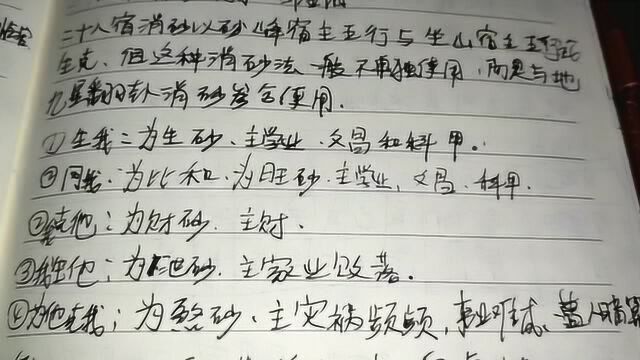 二十八宿消砂以砂峰宿主五行与坐山宿主五行论
生克、但这种消砂法一般不单独使用,而是与地
九星翻卦消砂参合使用.
①生我:为生砂、主学业、文昌和科甲。
②同我:为比和、为旺砂、主学业、文昌、科甲.
②我克他:为财砂、主财、
③我生他:为泄砂、主家业败落。
④为他克我;为煞砂、主灾祸频频,事业难成、